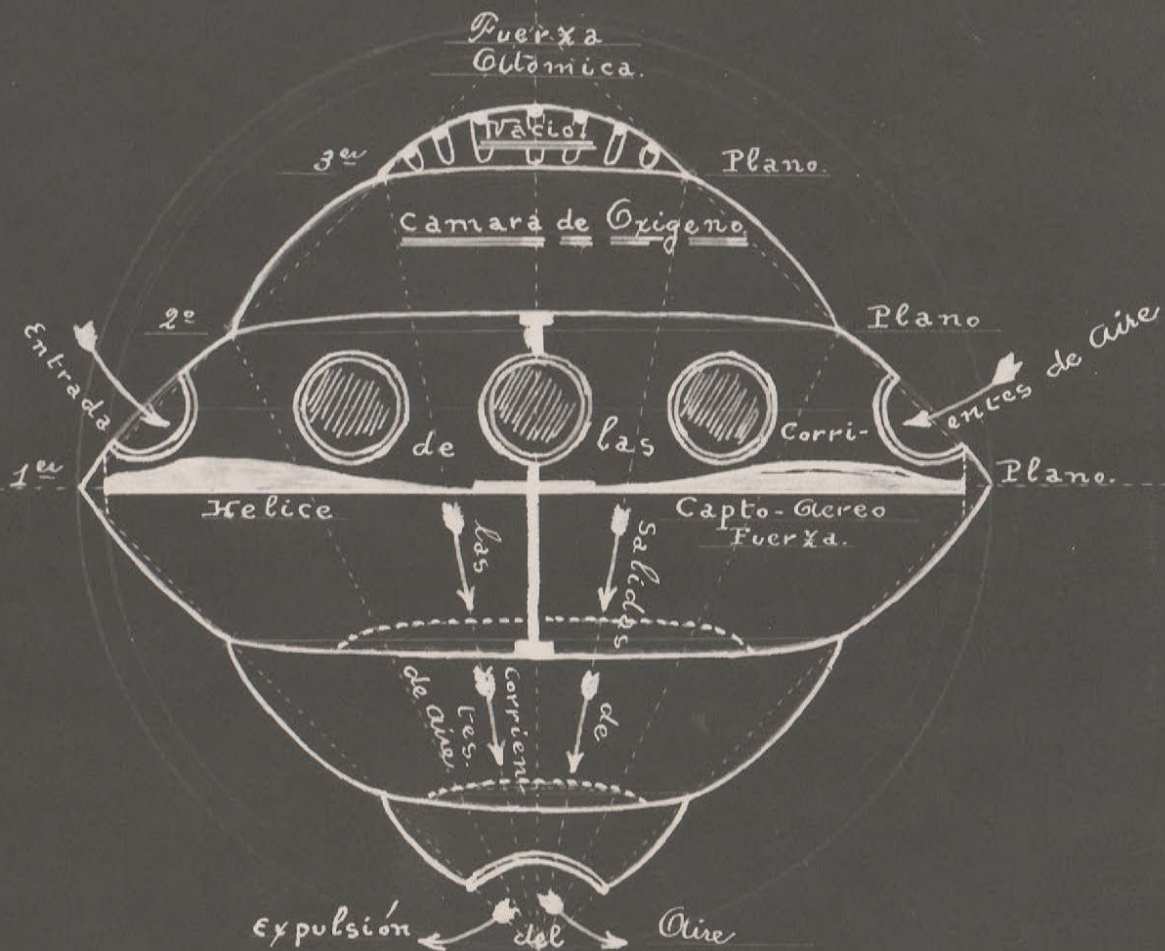 Fuerza
Atómica.
Vacio.
3er Plano.
Camara de Oxigeno
2º Plano
Entrada de las Corri-
entes de aire
1er Plano.
Helice
Capto-Aereo
Fuerza.
las Salidas
de Corrien
tes.
de aire
Expulsión del Aire